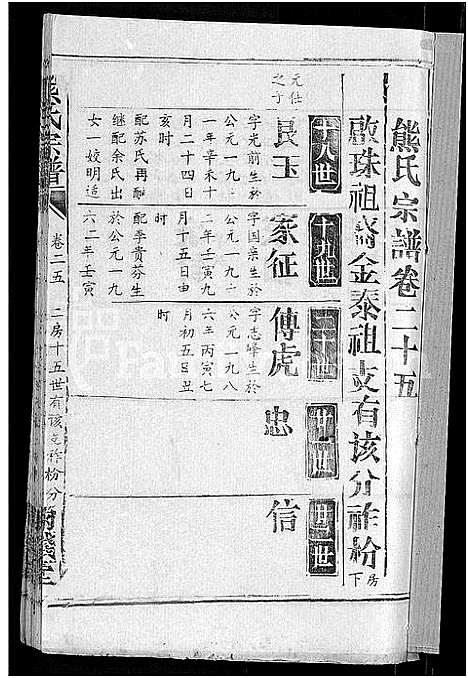 熊氏宗譜卷二十五
啟珠祖裔金泰祖支有该分祚枌房下
十八世
十九世
二十世
廿一世
廿二世
元仕之子
良玉
家征
傳虎
忠
信
字光前生於
公元一九
一年辛未十
月二十四日
亥时
配苏氏再
继配余氏出
女一姣明适
字国亲生於
公元一九
二年壬寅九
月十五日由
时
配李贵芬生
於公元一九
六二年壬寅
字志峰生於
公元一九八
六年丙寅七
月初五日丑
时
熊氏宗譜
卷二五
二房十五世有该支祚枌分